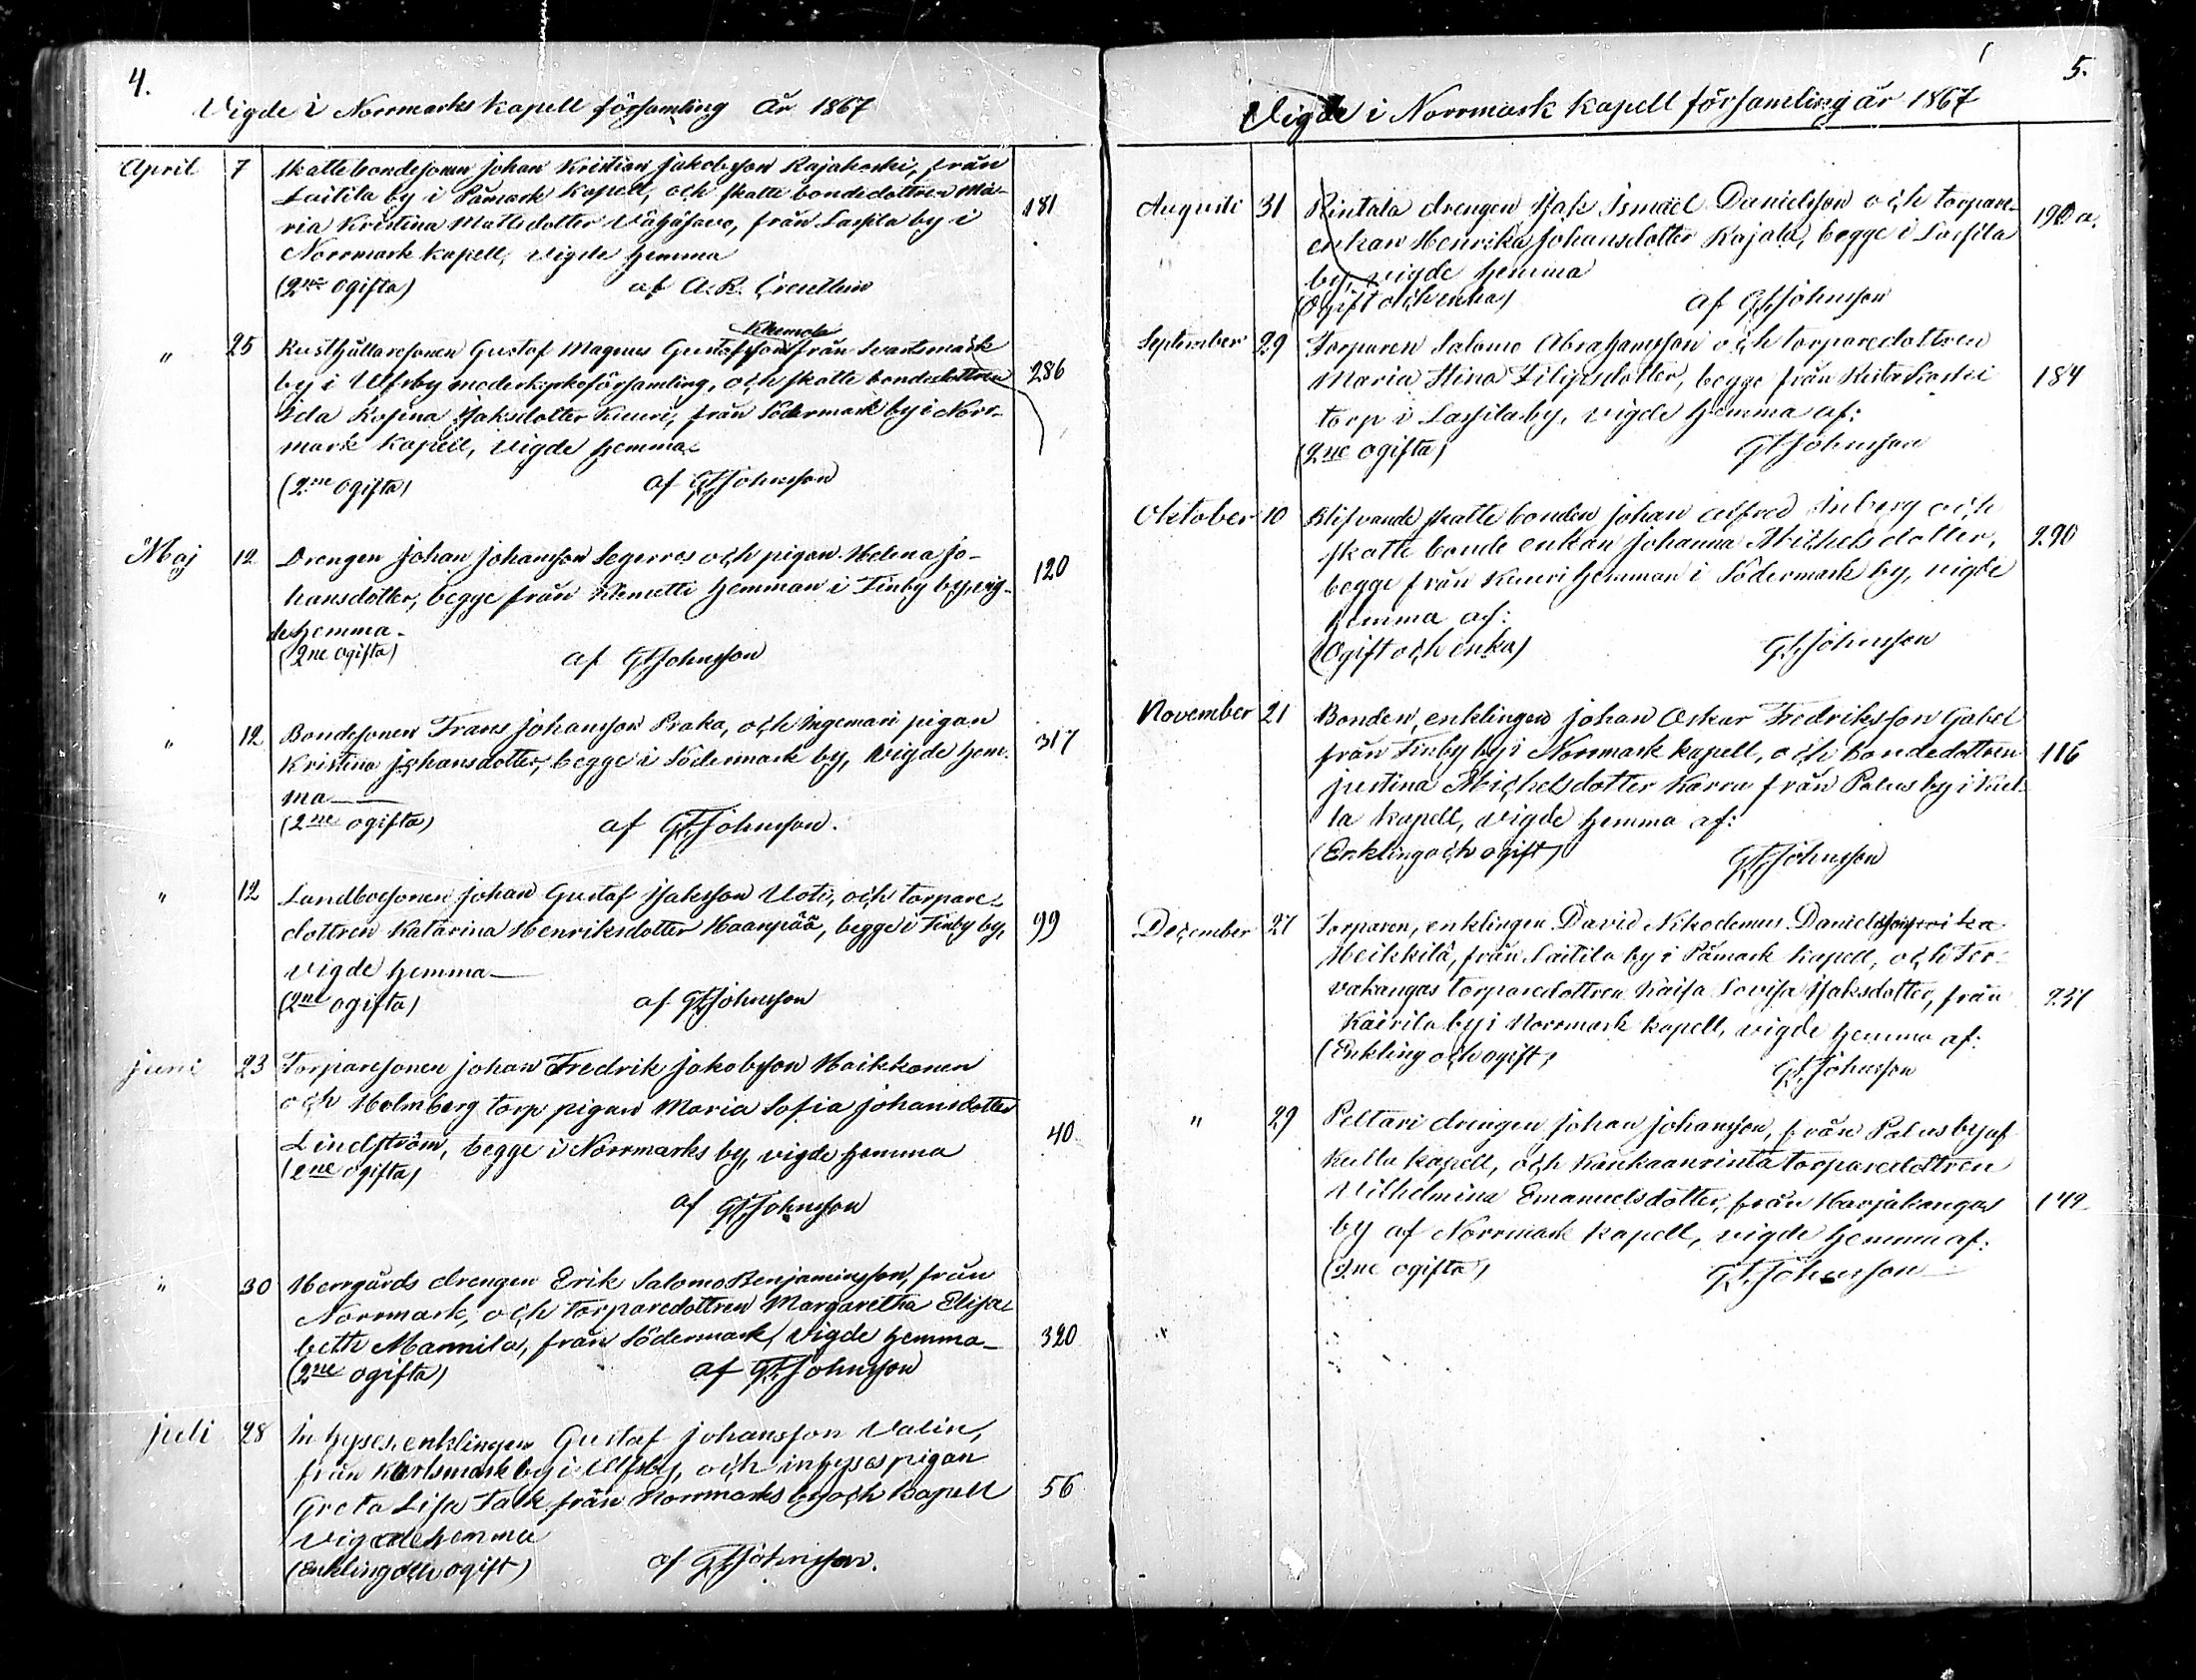 4.
Vigde i Norrmarks kapell församling År 1867
April 7 Skattebondesonen Johan Kristian Jakobsson Rajakoski, från
Laitila by i Påmark kapell, och skatte bondedottren Ma-
ria Kristina Mattsdotter Vähäsavo, från Lassila by i 181
Norrmark kapell, vigde hemma
(2ne ogifta) af A. R.
Klemola
" 25 Rusthållaresonen Gustaf Magnus Gustafsson från Svartsmark
by i Ulfsby moderkyrkoförsamling, och skatte bondedottren 286
Ida Rosina Isaksdotter Kuuri, från Södermark by i Norr-
mark kapell, vigde hemma
(2ne ogifta) af GFJohnsson
Maj 12 Drengen Johan Johansson Segerros och pigan Helena Jo- 120
hansdotter, begge från Klemetti hemman i Finby by, vig-
de hemma
(2ne ogifta) af GFJohnsson
" 12 Bondesonen Frans Johansson Praka, och Ingemari pigan 317
Kristina Johansdotter, begge i Södermark by, vigde hem-
ma
(2ne ogifta) af GFJohnsson.
" 12 Landboesonen Johan Gustaf Isaksson Uoti, och torpare-
dottren Katarina Henriksdotter Haanpää, begge i Finby by, 99
vigde hemma
(2ne ogifta) af GFJohnsson
Juni 23 Torparesonen Johan Fredrik Jakobsson Haikkonen
och Holmberg torp pigan Maria Sofia Johansdotter
Lindström, begge i Norrmarks by, vigde hemma 40
(2ne ogifta)
af GFJohnsson
" 30 Herrgårds drengen Erik Salomo Benjaminsson, från
Norrmark, och torparedottren Margaretha Elisa-
beth Mannila, från Södermark, vigde hemma 320
(2ne ogifta) af GFJohnsson
Juli 28 Inhyses enklingen Gustaf Johansson Valin,
från Karlsmark by i Ulfsby, och inhyses pigan
Greta Lisa Falk från Norrmarks by och kapell 56
vigde hemma
(Enkling och ogift) af GFJohnsson.
5.
Vigde i Norrmark kapell församling år 1867
Augusti 31 Rintala drengen Isak Ismael Danielsson och torpare- 190 a.
enkan Henrika Johansdotter Rajala, begge i Lassila
by, vigde hemma
(Ogift och enka) af GFJohnsson
September 29 Torparen Salomo Abrahamsson och torparedottren
Maria Stina Filipsdotter, begge från 184
torp i Lassila by, vigde hemma af:
(2ne ogifta) GFJohnsson
Oktober 10 Blifvande skatte bonden Johan Alfred Inberg och
skatte bonde enkan Johanna Michelsdotter, 290
begge från Kuuri hemman i Södermark by, vigde
hemma af:
(Ogift och enka) GFJohnsson
November 21 Bonden, enklingen Johan Oskar Fredriksson Gabel
från Finby by i Norrmark kapell, och bondedottren 116
Justina Michelsdotter Karru från Palus by i Kul-
la kapell, vigde hemma af:
(Enkling och ogift) GFJohnsson
December 27 Torparen, enklingen David Nikodemus Danielsson
Heikkilä, från Laitila by i Påmark kapell, och Ter-
vakangas torparedottren Kaisa Lovisa Isaksdotter, från 237
Kairila by i Norrmark kapell, vigde hemma af:
(Enkling och ogift) GFJohnsson
" 29 Peltari drengen Johan Johansson, från Palus by af
Kulla kapell, och Kankaanrinta torparedottren
Vilhelmina Emanuelsdotter, från Harjakangas 142
by af Norrmark kapell, vigde hemma af:
(2ne ogifta) GFJohnsson